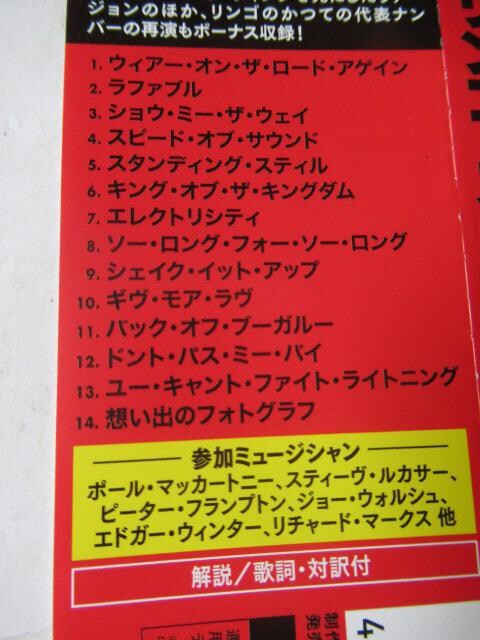 ジョンのほか、リンゴのかつての代表ナン
バーの再演もボーナス収録!
1. ウィアー・オン・ザ・ロード・アゲイン
2. ラファブル
3. ショウ・ミー・ザ・ウェイ
4. スピード・オブ・サウンド
5. スタンディング・スティル
6. キング・オブ・ザ・キングダム
7. エレクトリシティ
8. ソー・ロング・フォー・ソー・ロング
9. シェイク・イット・アップ
10. ギヴ・モア・ラヴ
11. バック・オフ・ブーガルー
12. ドント・パス・ミー・バイ
13. ユー・キャント・ファイト・ライトニング
14. 想い出のフォトグラフ
参加ミュージシャン
ポール・マッカートニー、スティーヴ・ルカサー、
ピーター・フランプトン、ジョー・ウォルシュ、
エドガー・ウィンター、リチャード・マークス 他
解説/歌詞・対訳付